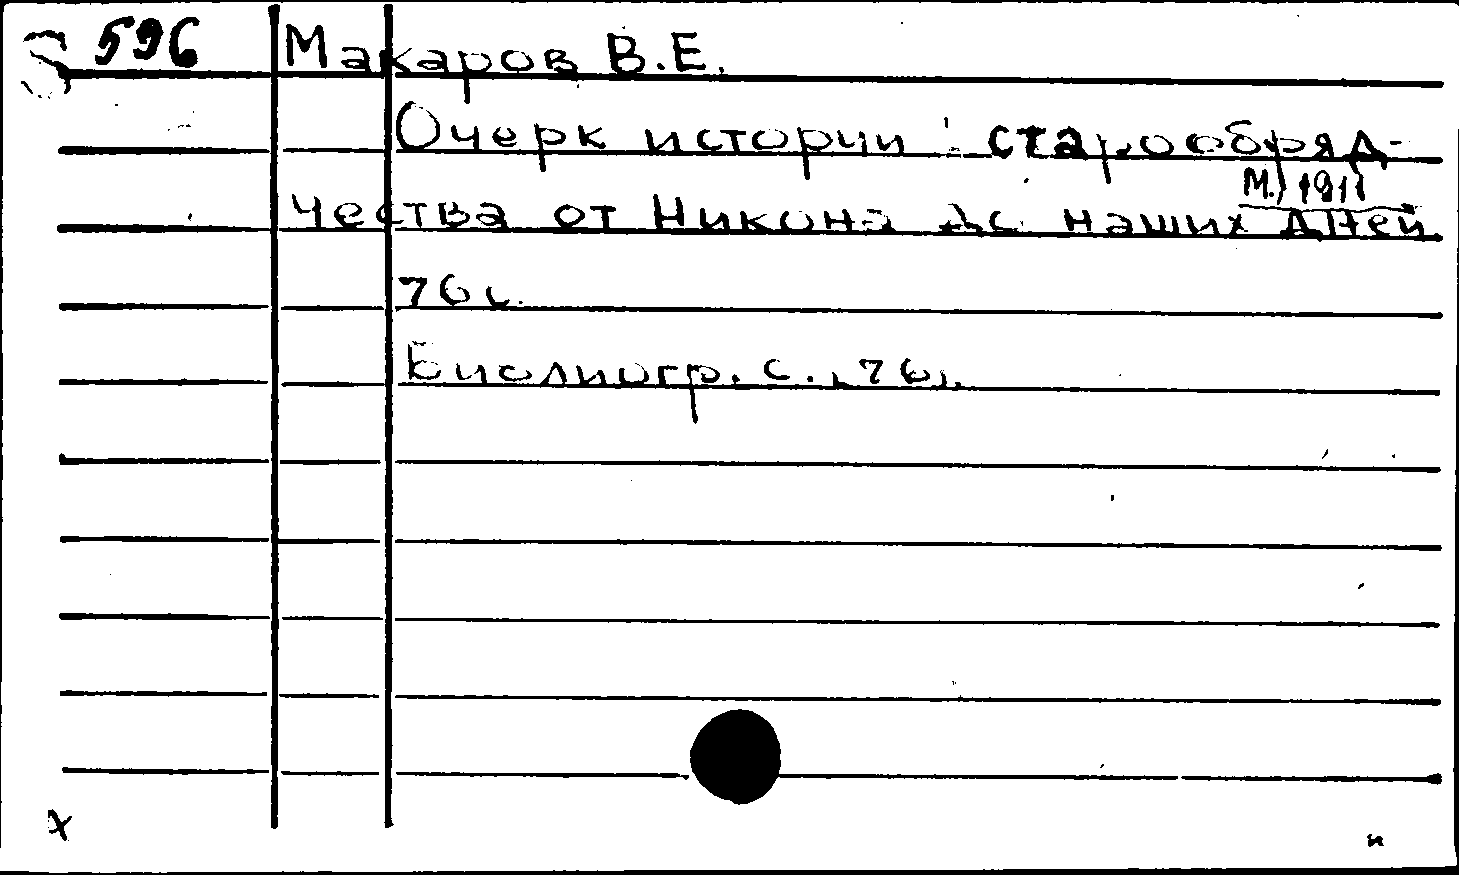 596 Макаров В.Е.
Очерк истории старообряд-
М., 1911
чества от Никона до наших дней
76 с.
Библиогр. с. 76.
х
и